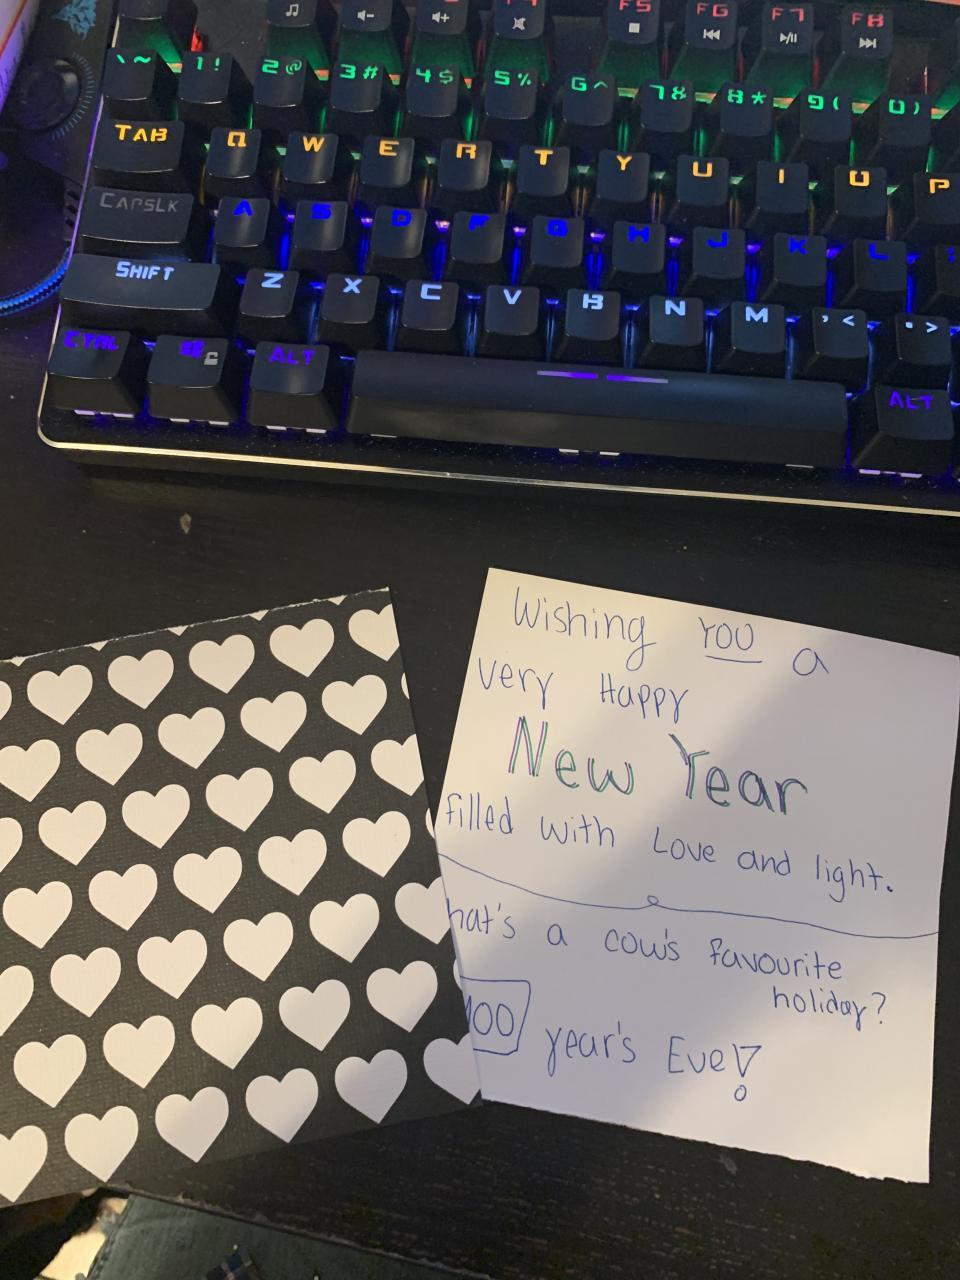 F5 F6 F7 F8
`~ 1! 2@ 3# 4$ 5% 6^ 7& 8* 9( 0)
TAB Q W E R T Y U I O P
CAPSLK A S D F G H J K L ;
SHIFT Z X C V B N M ,< .>
CTRL ALT ALT
Wishing YOU a
very Happy
New Year
filled with Love and light.
hat's a cow's favourite
holiday?
MOO year's Eve!